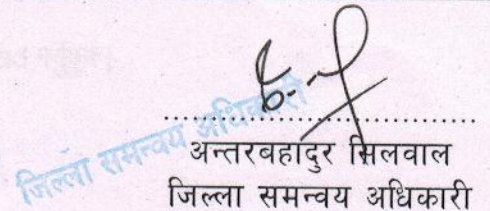 जिल्ला समन्वय अधिकारी
....................................
अन्तरबहादुर सिलवाल
जिल्ला समन्वय अधिकारी